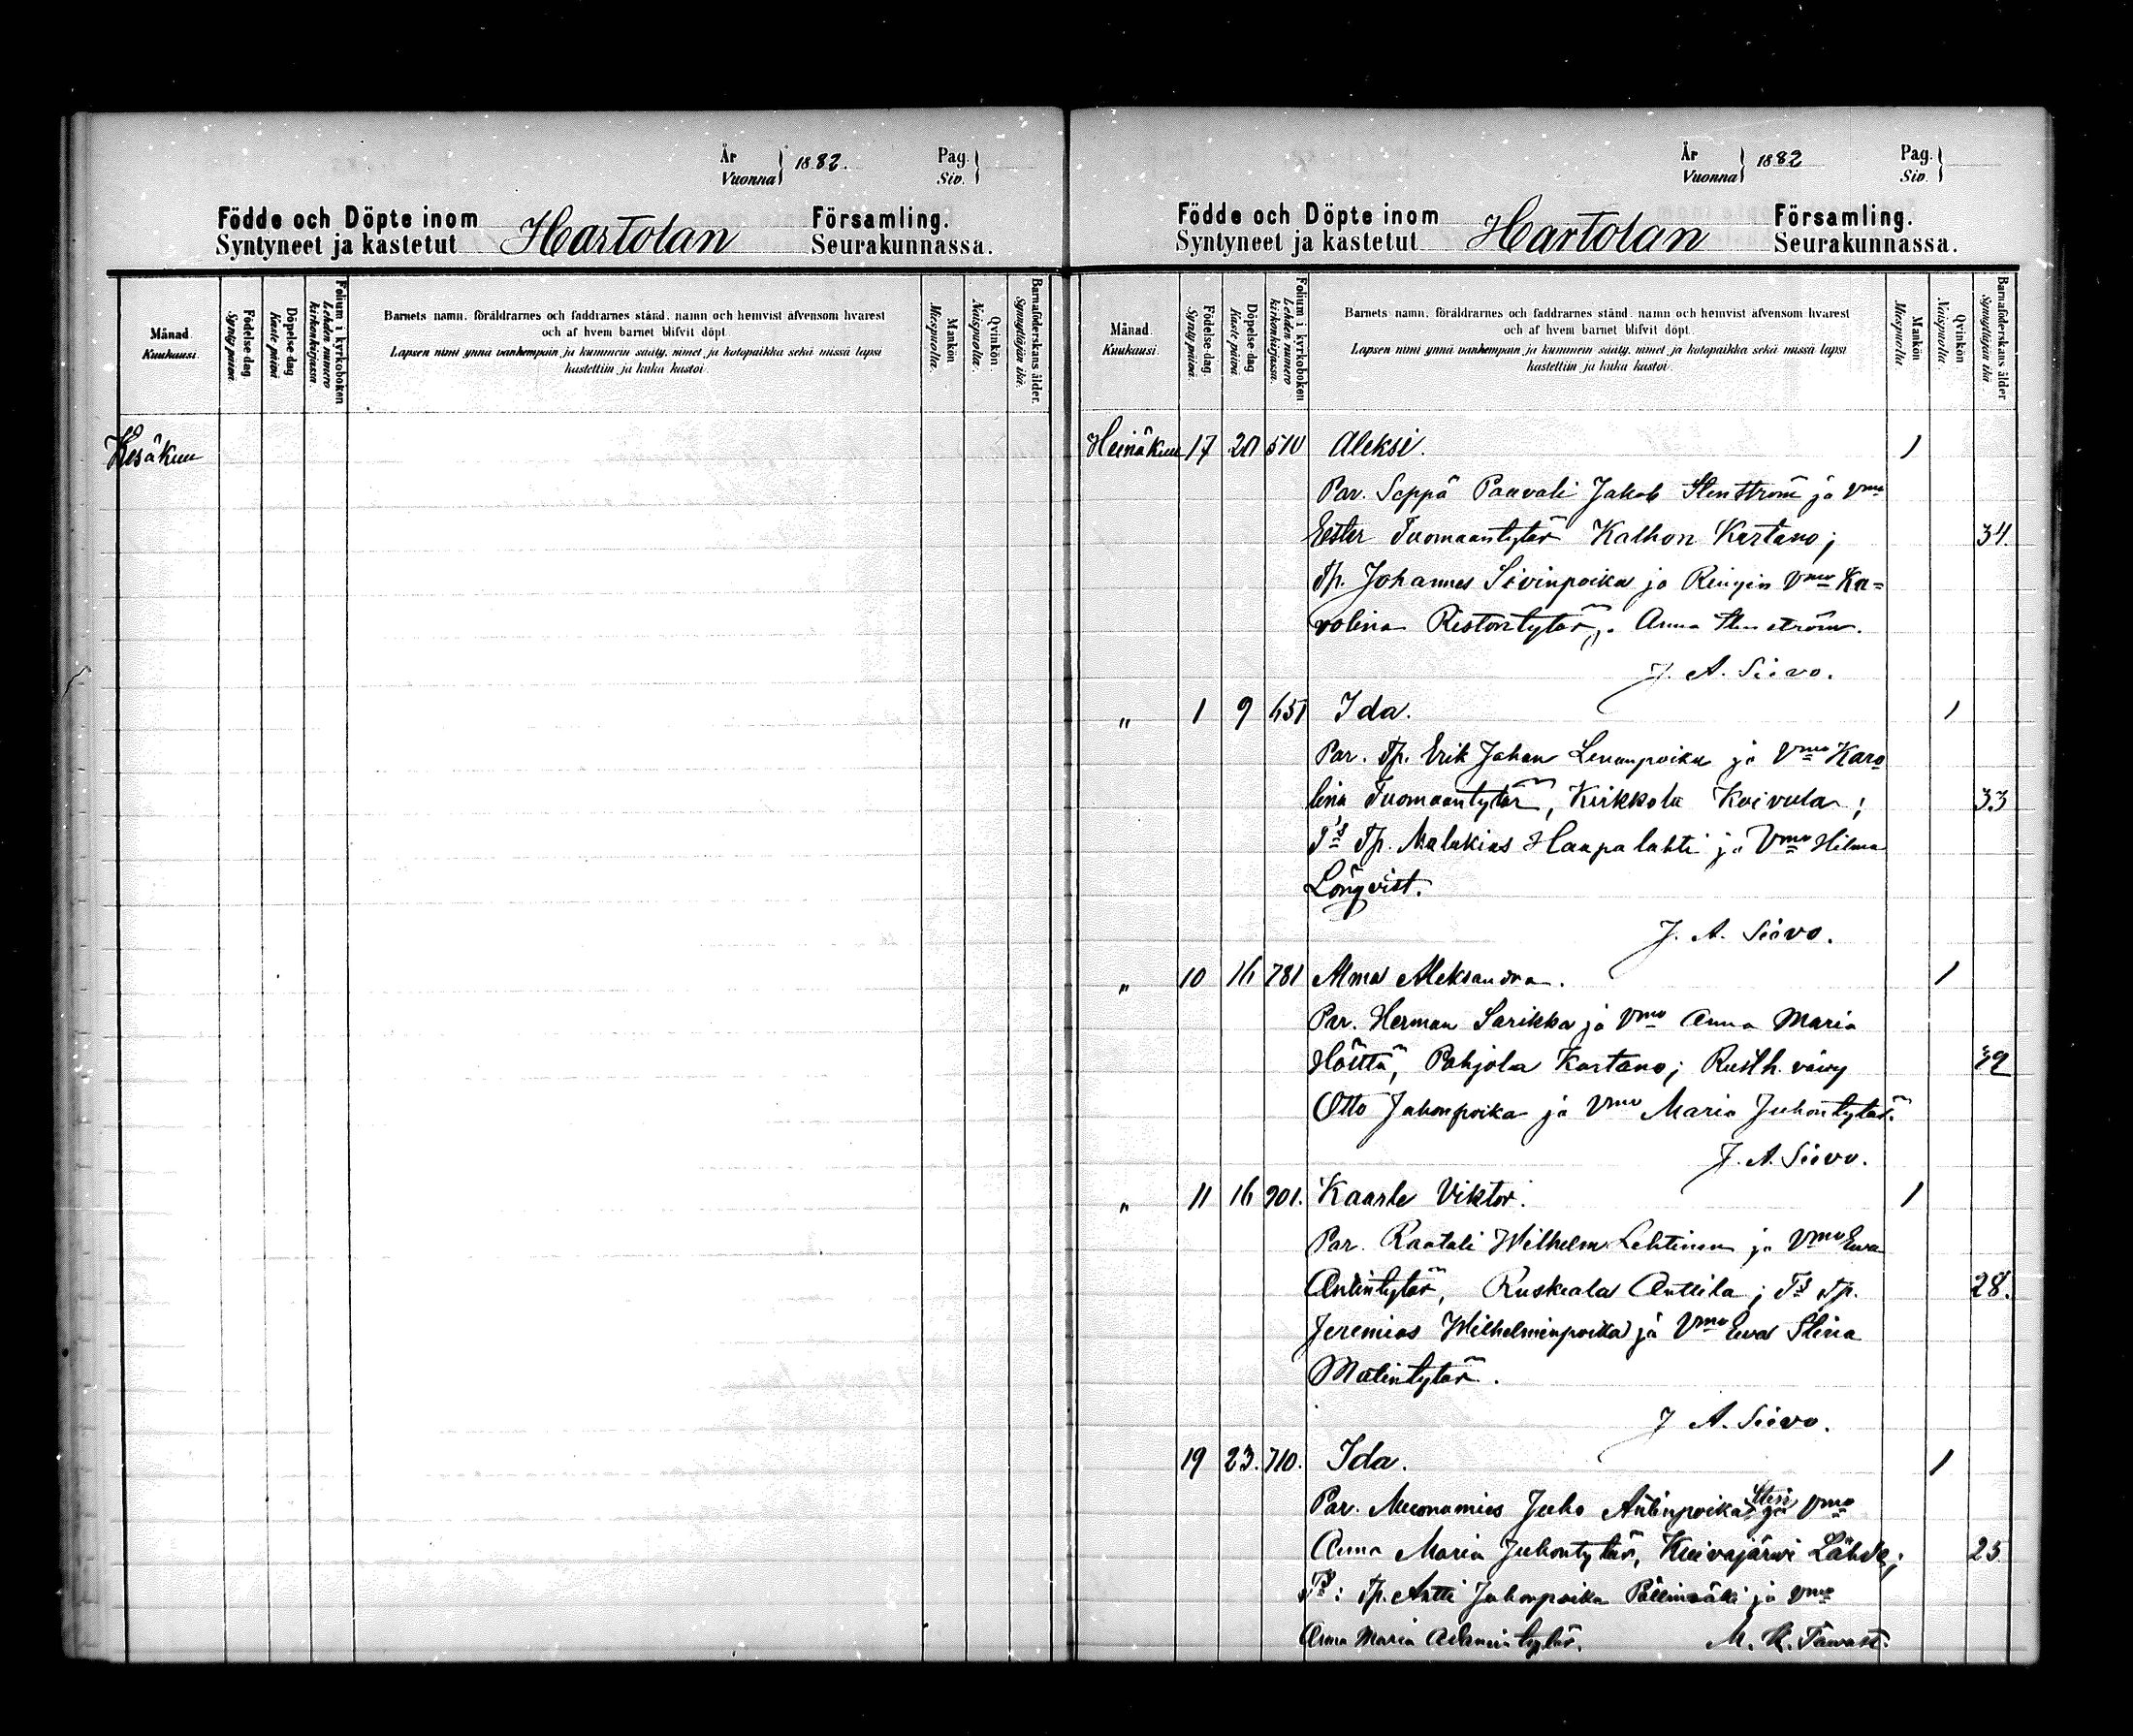 År
Vuonna } 1882.
Pag.
Siv. }
Födde och Döpte inom Hartolan Församling.
Syntyneet ja kastetut Seurakunnassa.
Månad.
Kuukausi.
Födelse-dag.
Synty päivä.
Döpelse-dag
Kaste päivä
Folium i kyrkoboken
Lehden numero
kirkonkirjassa.
Barnets namn, föräldrarnes och faddrarnes stånd, namn och hemvist äfvensom hvarest
och af hvem barnet blifvit döpt.
Lapsen nimi ynnä vanhempain ja kummein sääty, nimet ja kotopaikka sekä missä lapsi
kastettiin ja kuka kastoi.
Mankön
Miespuolia.
Qvinkön.
Naispuolia.
Barnaföderskans ålder.
Synnyttäjän ikä.
Kesäkuu
År
Vuonna } 1882
Pag.
Siv. }
Födde och Döpte inom Hartolan Församling.
Syntyneet ja kastetut Seurakunnassa.
Månad.
Kuukausi.
Födelse-dag.
Synty päivä.
Döpelse-dag
Kaste päivä
Folium i kyrkoboken
Lehden numero
kirkonkirjassa.
Barnets namn, föräldrarnes och faddrarnes stånd, namn och hemvist äfvensom hvarest
och af hvem barnet blifvit döpt.
Lapsen nimi ynnä vanhempain ja kummein sääty, nimet ja kotopaikka sekä missä lapsi
kastettiin ja kuka kastoi.
Mankön
Miespuolia
Qvinkön
Naispuolia.
Barnaföderskans ålder
Synnyttäjän ikä.
Heinäkuu 17 20 510 Aleksi. 1
Par. Seppä Paavali Jakob Stenström ja Vmo
Eester Tuomaantytär Kalhon Kartano; 34.
Tp. Johannes Siivinpoika ja Vmo Ka-
rolina Ristontytär, Anna Stenström.
J. A. Siivo.
" 1 9 651 Ida. 1
Par. Tp. Erik Johan Lenanpoika ja Vmo Karo
lina Tuomaantytär, Kirkkola Koivula; 33
Ts Tp. Malakias Haapalahti ja Vmo Hilma
Lönqvist.
J. A. Siivo.
" 10 16 781 Alma Aleksandra. 1
Par. Herman Sarikka ja Vmo Anna Maria
Höttä, Pohjola Kartano; Rusth. vävy 39
Otto Juhonpoika ja Vmo Maria Juhontytär.
J. A. Siivo.
" 11 16 901. Kaarle Viktor. 1
Par. Raatali Wilhelm Lehtinen ja Vmo Ewa
Antintytär, Ruskeala Anttila; Ts Tp. 28.
Jeremias Wilhelminpoika ja Vmo Ewa Stina
Matintytär.
J A. Siivo.
19 23. 710. Ida. 1
Par. Muonamies Juho Antinpoika ja Vmo
Anna Maria Juhontytär, Kuivajärwi Lähde; 25
Ts: Tp. Antti Juhonpoika ja Vmo
Anna Maria Adamintytär. M. K. Tawast.